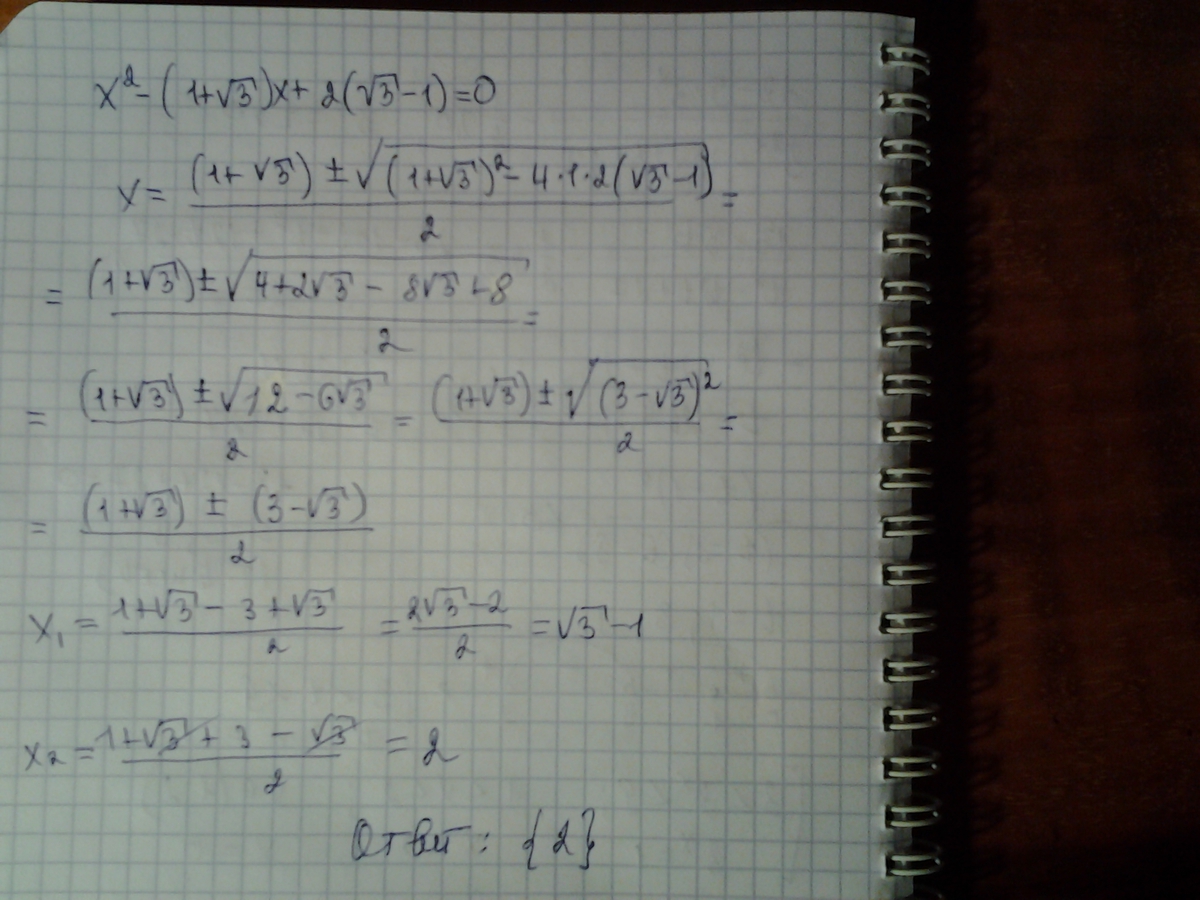 x² - (1+√3)x + 2(√3-1) = 0
x = ((1+√3) ± √((1+√3)² - 4·1·2(√3-1))) / 2 =
= ((1+√3) ± √(4+2√3 - 8√3+8)) / 2 =
= ((1+√3) ± √(12-6√3)) / 2 = ((1+√3) ± √((3-√3)²)) / 2 =
= ((1+√3) ± (3-√3)) / 2
x₁ = (1+√3 - 3+√3) / 2 = (2√3-2) / 2 = √3-1
x₂ = (1+√3 + 3 - √3) / 2 = 2
Ответ: {2}